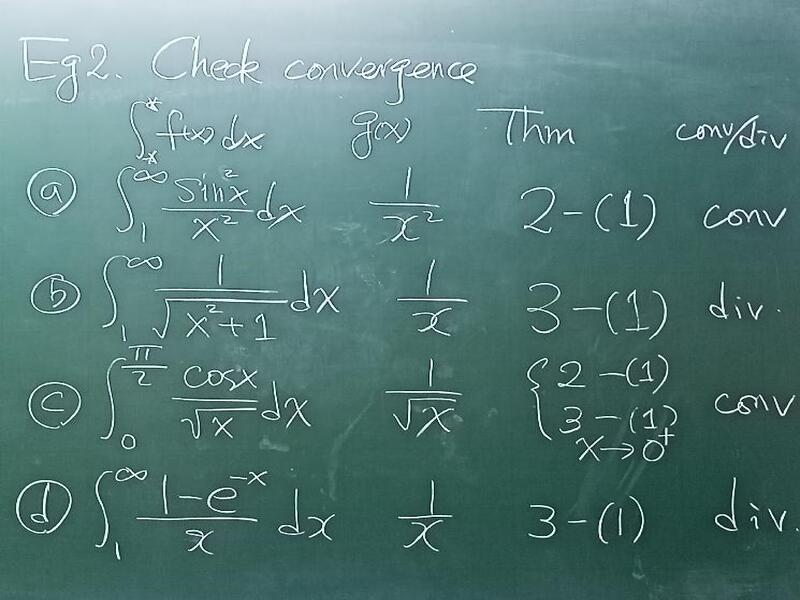 Eg 2. Check convergence
∫_*^* f(x) dx g(x) Thm conv/div
ⓐ ∫_1^∞ sin²x/x² dx 1/x² 2-(1) conv
ⓑ ∫_1^∞ 1/√(x²+1) dx 1/x 3-(1) div.
ⓒ ∫_0^(π/2) cosx/√x dx 1/√x { 2-(1) 3-(1) x→0⁺ conv
ⓓ ∫_1^∞ (1-e^(-x))/x dx 1/x 3-(1) div.